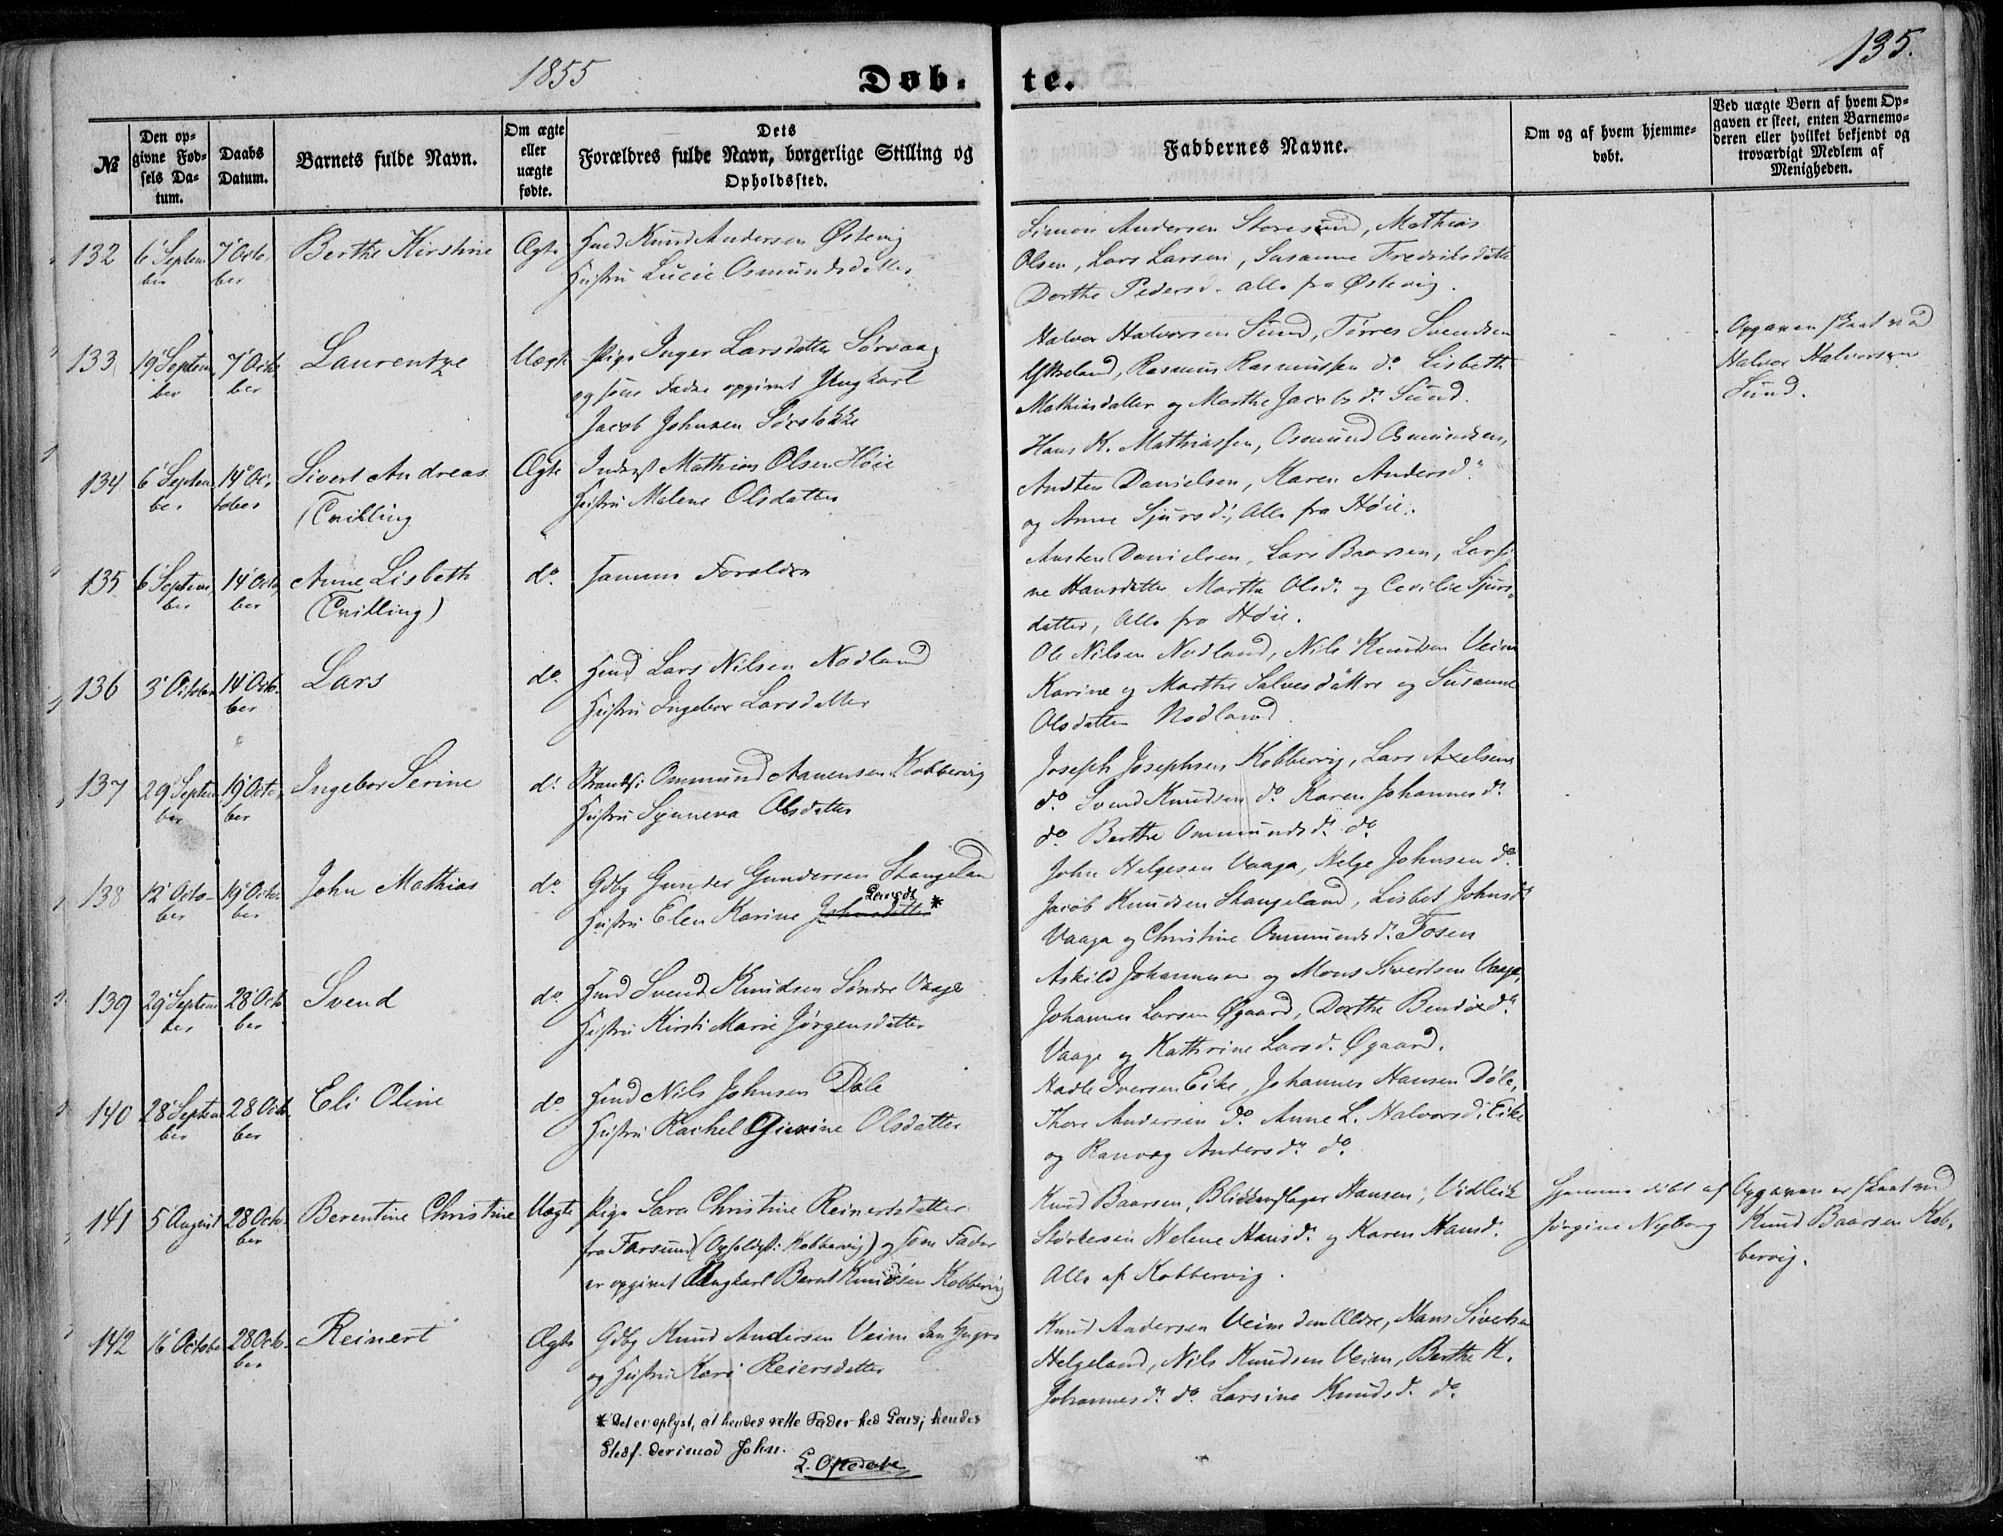 1855
Døb-te.
135.
№
Den op-
givne Fød-
sels Da-
tum.
Daabs
Datum.
Barnets fulde Navn.
Om ægte
eller
uægte
fødte.
Dets
Forældres fulde Navn, borgerlige Stilling og
Opholdssted.
Faddernes Navne.
Om og af hvem hjemme-
døbt.
Ved uægte Børn af hvem Op-
gaven er skeet, enten Barnemo-
deren eller hvilket bekjendt og
troværdigt Medlem af
Menigheden.
132
6 Septem
ber
7 Octo-
ber
Berthe Kirstine
Ægte
Hmd Knud Andersen Østevig
Hustru Lucie Osmundsdatter
Simon Andersen Storesund, Mathias
Olsen, Lars Larsen, Susanne Fredriksdatte
Dorthe Pedersd. alle fra Østevig.
133
19 Septem
ber
7 Octo
ber
Laurentze
Uægte
Pige Inger Larsdatter Sørvaag
og som Fader opgivet Ungkarl
Jacob Johnsen Sørstokke
Halvor Halvorsen Sund, Tørres Svendsen
Ytreland, Rasmus Rasmussen do Lisbeth
Mathiasdatter og Marthe Jacobsdr Sund.
Opgaven skeet ved
Halvor Halvorsen
Sund.
134
6 Septem
ber
14 Oc-
tober
Sivert Andreas
(Tvilling
Ægte
Inderst Mathias Olsen Høie
Hustru Malene Olsdatter
Hans K. Mathiassen, Osmund Osmundsen,
Austen Danielsen, Karen Andersdr
og Anne Sjursdr, Alle fra Høie.
135
6 Septem
ber
14 Octo
ber
Anne Lisbeth
(Tvilling)
do
Samme Forældre
Austen Danielsen, Lars Baarsen, Larsi
ne Hansdatter Marthe Olsdr og Cecilie Sjurs
datter, Alle fra Høie.
136
3 October
14 Octo-
ber
Lars
do
Hmd Lars Nilsen Nodland
Hustru Ingebor Larsdatter
Ole Nilsen Nodland, Nils Knudsen Veim
Karine og Marthe Salvesdøttre og Susanne
Olsdatter Nodland.
137
29 Septem
ber
19 Octo-
ber
Ingebor Serine
do
Strands: Ommund Aanensen Kobbervig
Hustru Synneva Olsdatter
Joseph Josephsen Kobbervig, Lars Axelsen
do Svend Knudsen do Karen Johannesdr
do Berthe Ommundsdr do
138
12 Octo-
ber
19 Octo-
ber
John Mathias
do
Gdbg Gunder Gundersen Stangelan
Hustru Elen Karine Johnsdatter*
Larsdt
John Helgesen Vaaga, Helge Johnsen do
Jacob Knudsen Stangeland, Lisbet Johnsdr
Vaaga og Christine Ommundsdr Fosen
139
29 Septem
ber
28 Octo
ber
Svend
do
Hmd Svend Knudsen Søndre Vaage
Hustru Kirsti Marie Jørgensdatter
Askild Johannesen og Mons Sivertsen Vaage,
Johannes Larsen Øgaard, Dorthe Bendixdr
Vaage og Kathrine Larsd. Øgaard.
140
28 Septem
ber
28 Octo
ber
Eli Oline
do
Hmd Nils Johnsen Døle
Hustru Rachel Gurine Olsdatter
Hadle Iversen Eike, Johannes Hansen Døle,
Thore Andersen do Anne L. Halvorsd. Eike
og Ranveg Andersdr do
141
5 August
28 Octo-
ber
Berentine Christine
Uægte
Pige Sara Christine Reinertsdatter
fra Farsund (Opholdsst: Kobbervig) og som Fader
er opgivet Ungkarl Bernt Knudsen Kobbervig
Knud Baarsen, Blikkenslager Hansen, Vidleik
Størkersen Helene Hansdr og Karen Hansdr
Alle af Kobbervig.
Hjemme døbt af
Jørgine Nyborg
Opgaven er skeet ved
Knud Baarsen Kob-
bervig.
142
16 October
28 Octo-
ber
Reinert
Ægte
Gdbg Knud Andersen Veim den Yngre
og Hustru Kari Reiersdatter
Knud Andersen Veim den Ældre, Hans Sivertsen
Helgeland, Nils Knudsen Veim, Berthe K.
Johannesdr do Larsine Knudsdr do
* Det er oplyst, at hendes rette Fader hed Lars, hendes
Stedf. derimod John.
L. Oftedahl